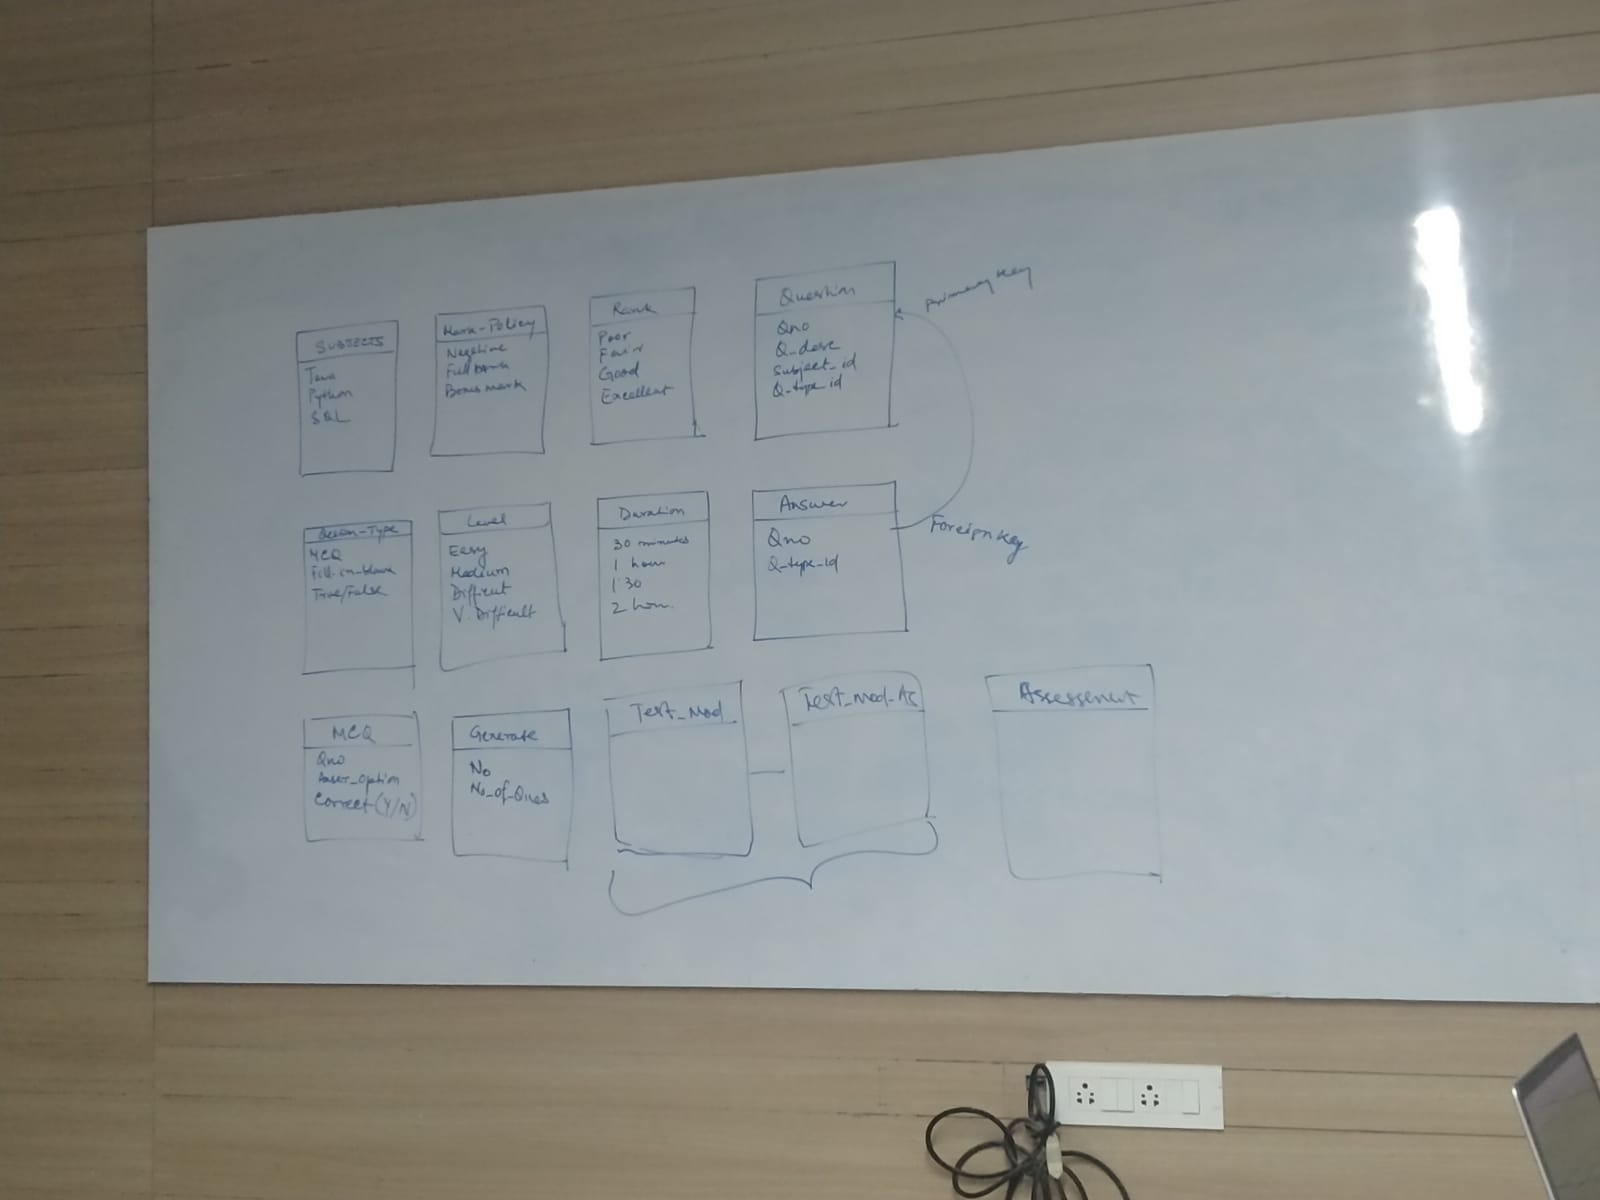 SUBJECTS
Java
Python
SQL
Mark-Policy
Negative
Full mark
Bonus mark
Rank
Poor
Fair
Good
Excellent
Question
Qno
Q_desc
Subject_id
Q-type_id
primary key
MCQ
Fill-in-blank
True/False
Level
Easy
Medium
Difficult
V. Difficult
Duration
30 minutes
1 hour
1:30
2 hour.
Answer
Qno
Q-type_id
Foreign key
MCQ
Qno
Correct (Y/N)
Generate
No
No_of_Ques
Test_Mod
Test_Mod_As
Assessment